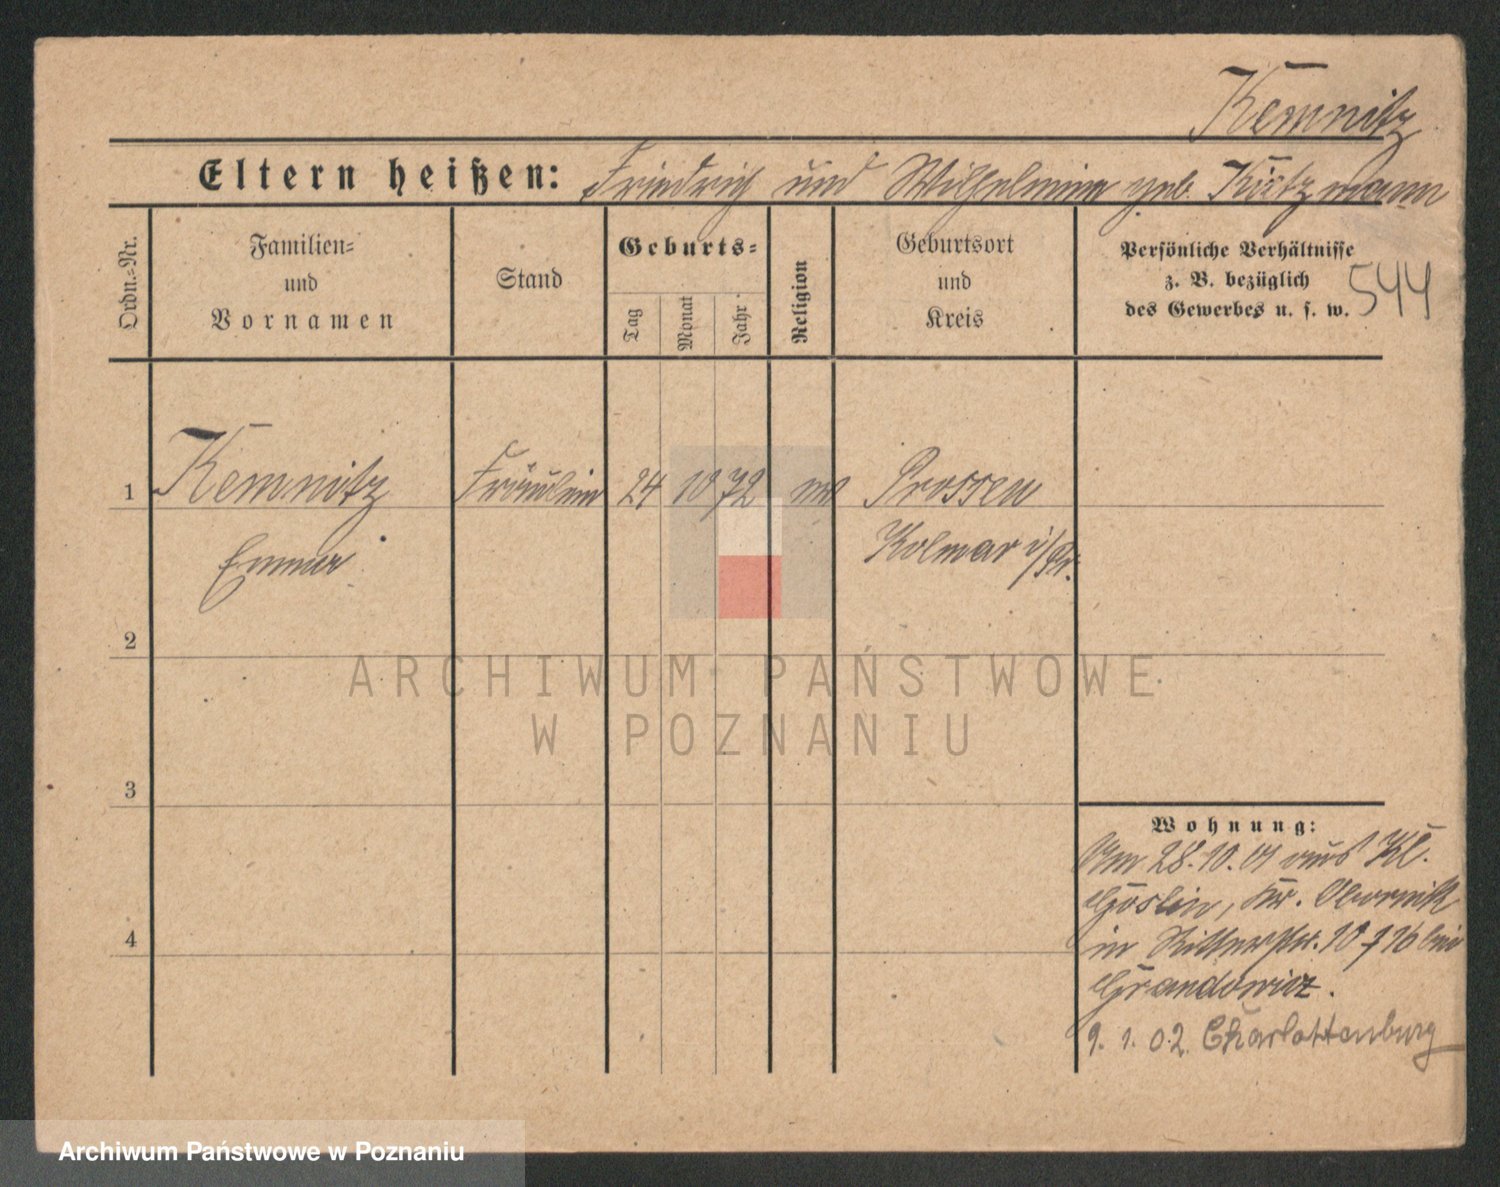 Kemnitz
Eltern heißen: Friedrich und Wilhelmine geb. Kützmann
Ordn.-Nr.
Familien-
und
Vornamen
Stand
Geburts-
Tag
Monat
Jahr
Religion
Geburtsort
und
Kreis
Persönliche Verhältnisse
z. B. bezüglich
des Gewerbes u. s. w.
544
1 Kemnitz Fräulein 24 10 72 ev Prossen
Emma Kolmar i/Ps.
2
3
4
Wohnung:
Am 28.10.01 aus Kl.
Goslin, Kr. Obornik
in Ritterstr. 10 bei
9. 1. 02. Charlottenburg
ARCHIWUM PAŃSTWOWE
W POZNANIU
Archiwum Państwowe w Poznaniu